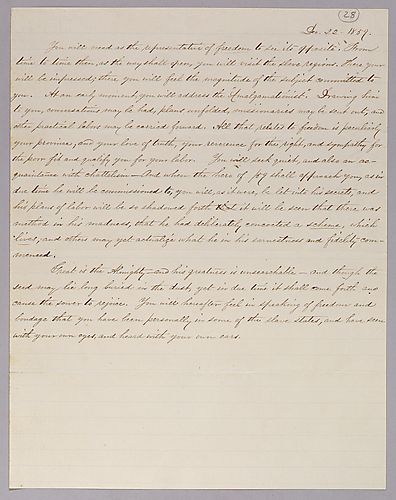 28
Dec. 22. 1859.
You will need as the representative of freedom to see its opposite. From
time to time then, as the way shall open, you will visit the slave regions. There your
will be impressed; there you will feel the magnitude of the subject committed to
you. At an early moment, you will address the "Amalgamationist." Drawing him
to you, conversations may be had, plans unfolded, missionaries may be sent out, and
other practical labor may be carried forward. All that relates to freedom is peculiarly
your province, and your love of truth, your reverence for the right, and sympathy for
the poor fit and qualify you for your labor. You will seek quiet, and also an ac-
quaintance with chattelism — And when the hero of 1859 shall approach you, as in
due time he will be commissioned to, you will, as it were, be let into his secrets, and
his plans of labor will be so shadowed forth that it will be seen that there was
method in his madness, that he had deliberately concocted a scheme, which
lives, and others may yet actualize what he in his earnestness and fidelity com-
menced.
Great is the Almighty — and his greatness is unsearchable — and though the
seed may lie long buried in the dust, yet in due time it shall come forth and
cause the sower to rejoice. You will hereafter feel in speaking of freedom and
bondage that you have been personally in some of the slave states, and have seen
with your own eyes, and heard with your own ears.